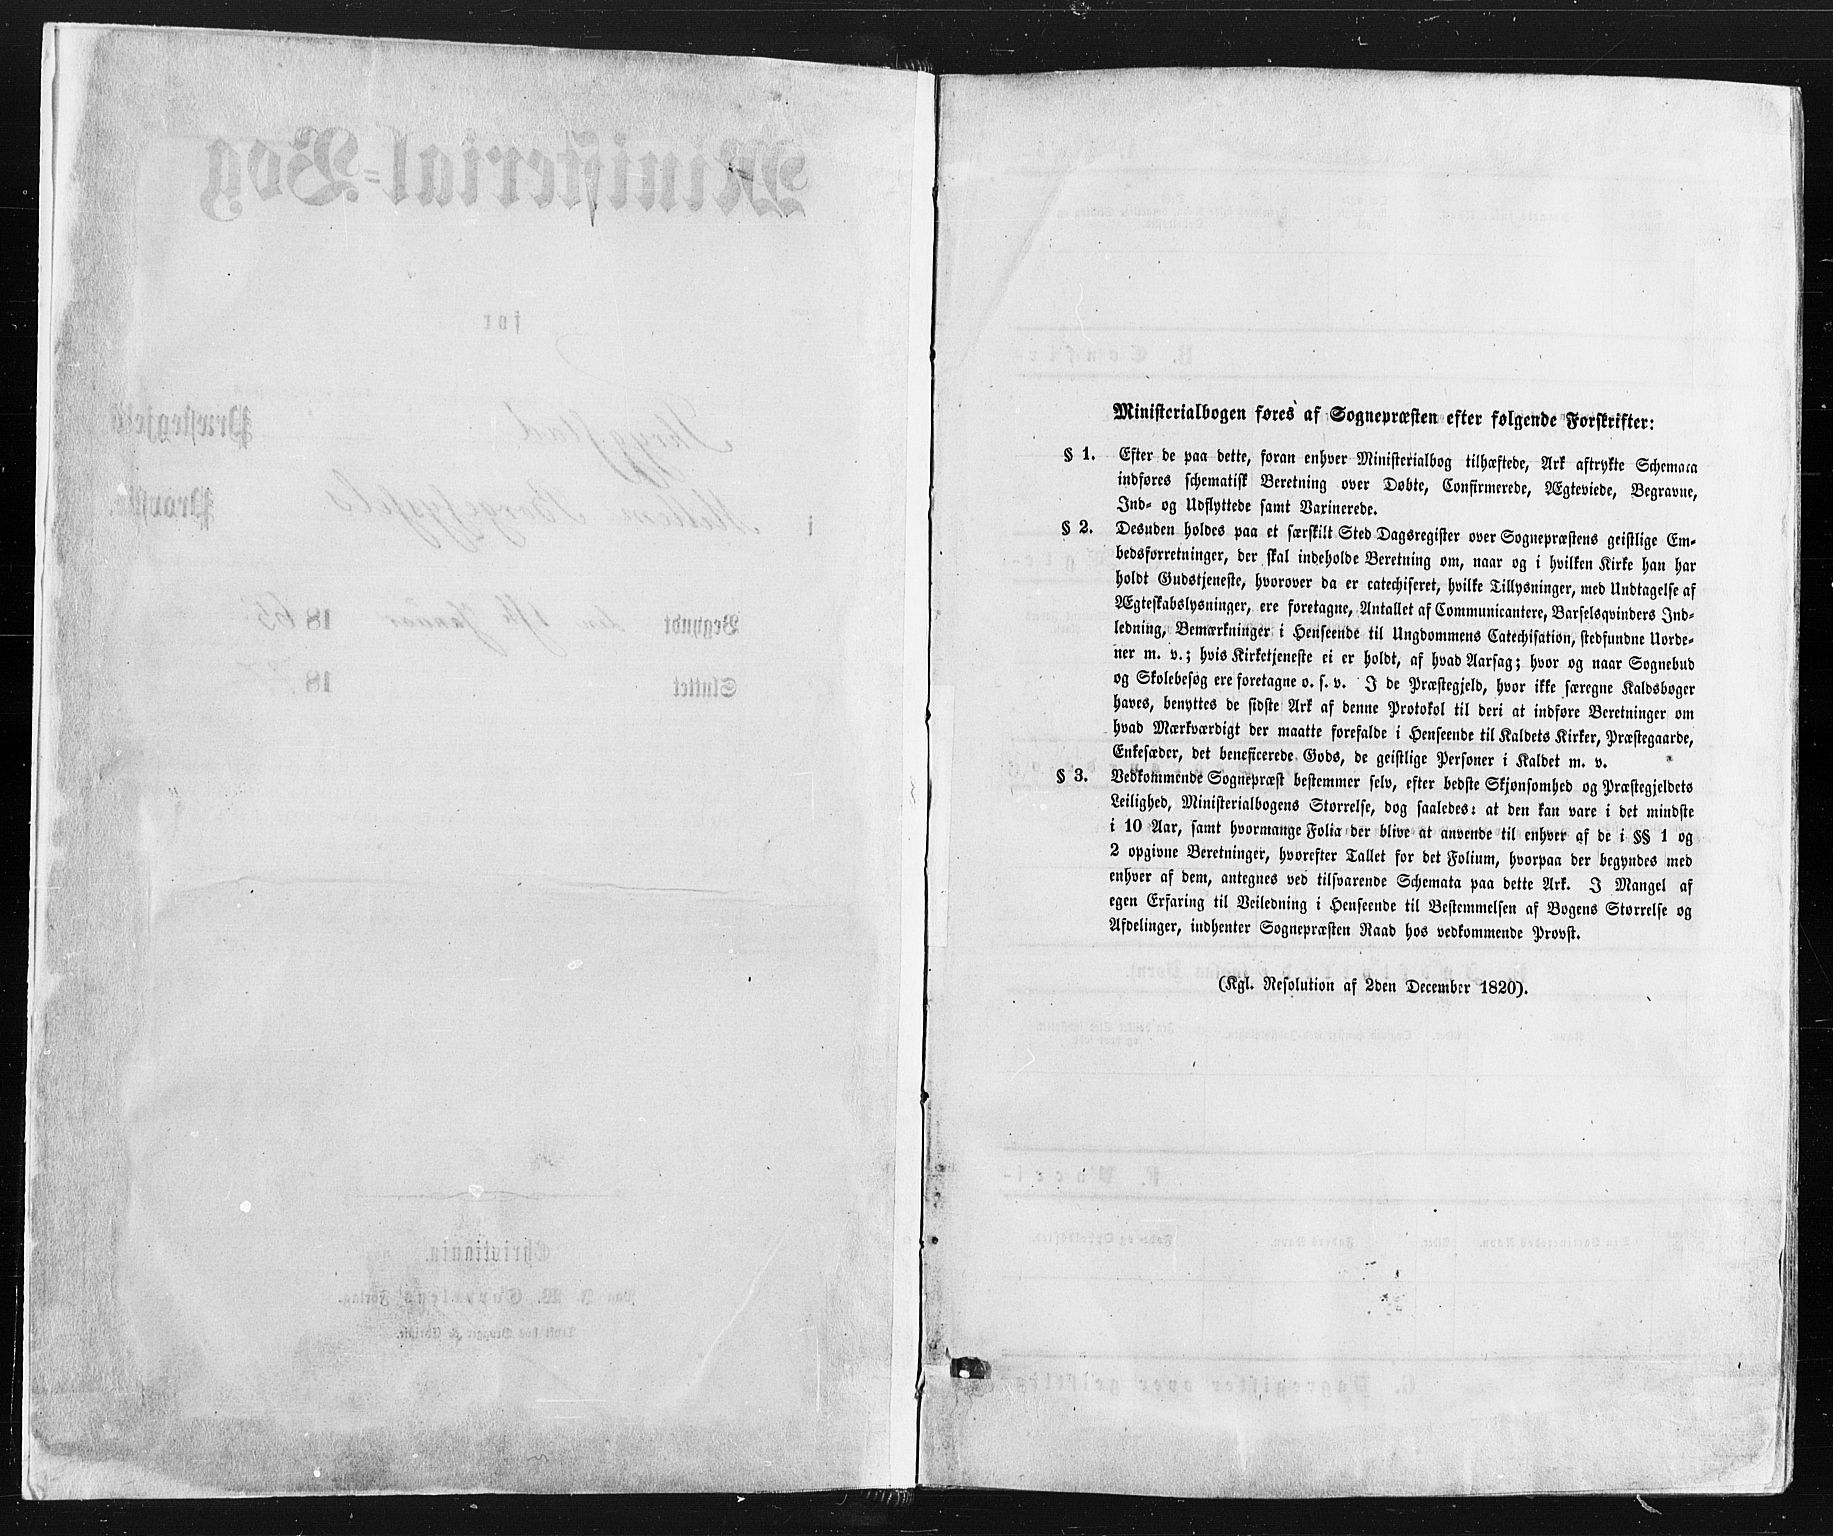 Ministerialbogen føres af Sognepræsten efter følgende Forskrifter:
§ 1. Efter de paa dette, foran enhver Ministerialbog tilhæftede, Ark aftrykte Schemata
indføres schematisk Beretning over Døbte, Confirmerede, Ægteviede, Begravne,
Ind- og Udflyttede samt Vaxinerede.
§ 2. Desuden holdes paa et særskilt Sted Dagsregister over Sognepræstens geistlige Em-
bedsforretninger, der skal indeholde Beretning om, naar og i hvilken Kirke han har
holdt Gudstjeneste, hvorover da er catechiseret, hvilke Tillysninger, med Undtagelse af
Ægteskabslysninger, ere foretagne, Antallet af Communicantere, Barselsqvinders Ind-
ledning, Bemærkninger i Henseende til Ungdommens Catechisation, stedfundne Uorde-
ner m. v.; hvis Kirketjeneste ei er holdt, af hvad Aarsag; hvor og naar Sognebud
og Skolebesøg ere foretagne o. s. v. I de Præstegjeld, hvor ikke særegne Kaldsbøger
haves, benyttes de sidste Ark af denne Protokol til deri at indføre Beretninger om
hvad Mærkværdigt der maatte forefalde i Henseende til Kaldets Kirker, Præstegaarde,
Enkesæder, det beneficerede Gods, de geistlige Personer i Kaldet m. v.
§ 3. Vedkommende Sognepræst bestemmer selv, efter bedste Skjønsomhed og Præstegjeldets
Leilighed, Ministerialbogens Størrelse, dog saaledes: at den kan vare i det mindste
i 10 Aar, samt hvormange Folia der blive at anvende til enhver af de i §§ 1 og
2 opgivne Beretninger, hvorefter Tallet for det Folium, hvorpaa der begyndes med
enhver af dem, antegnes ved tilsvarende Schemata paa dette Ark. I Mangel af
egen Erfaring til Veiledning i Henseende til Bestemmelsen af Bogens Størrelse og
Afdelinger, indhenter Sognepræsten Raad hos vedkommende Provst.
(Kgl. Resolution af 2den December 1820).